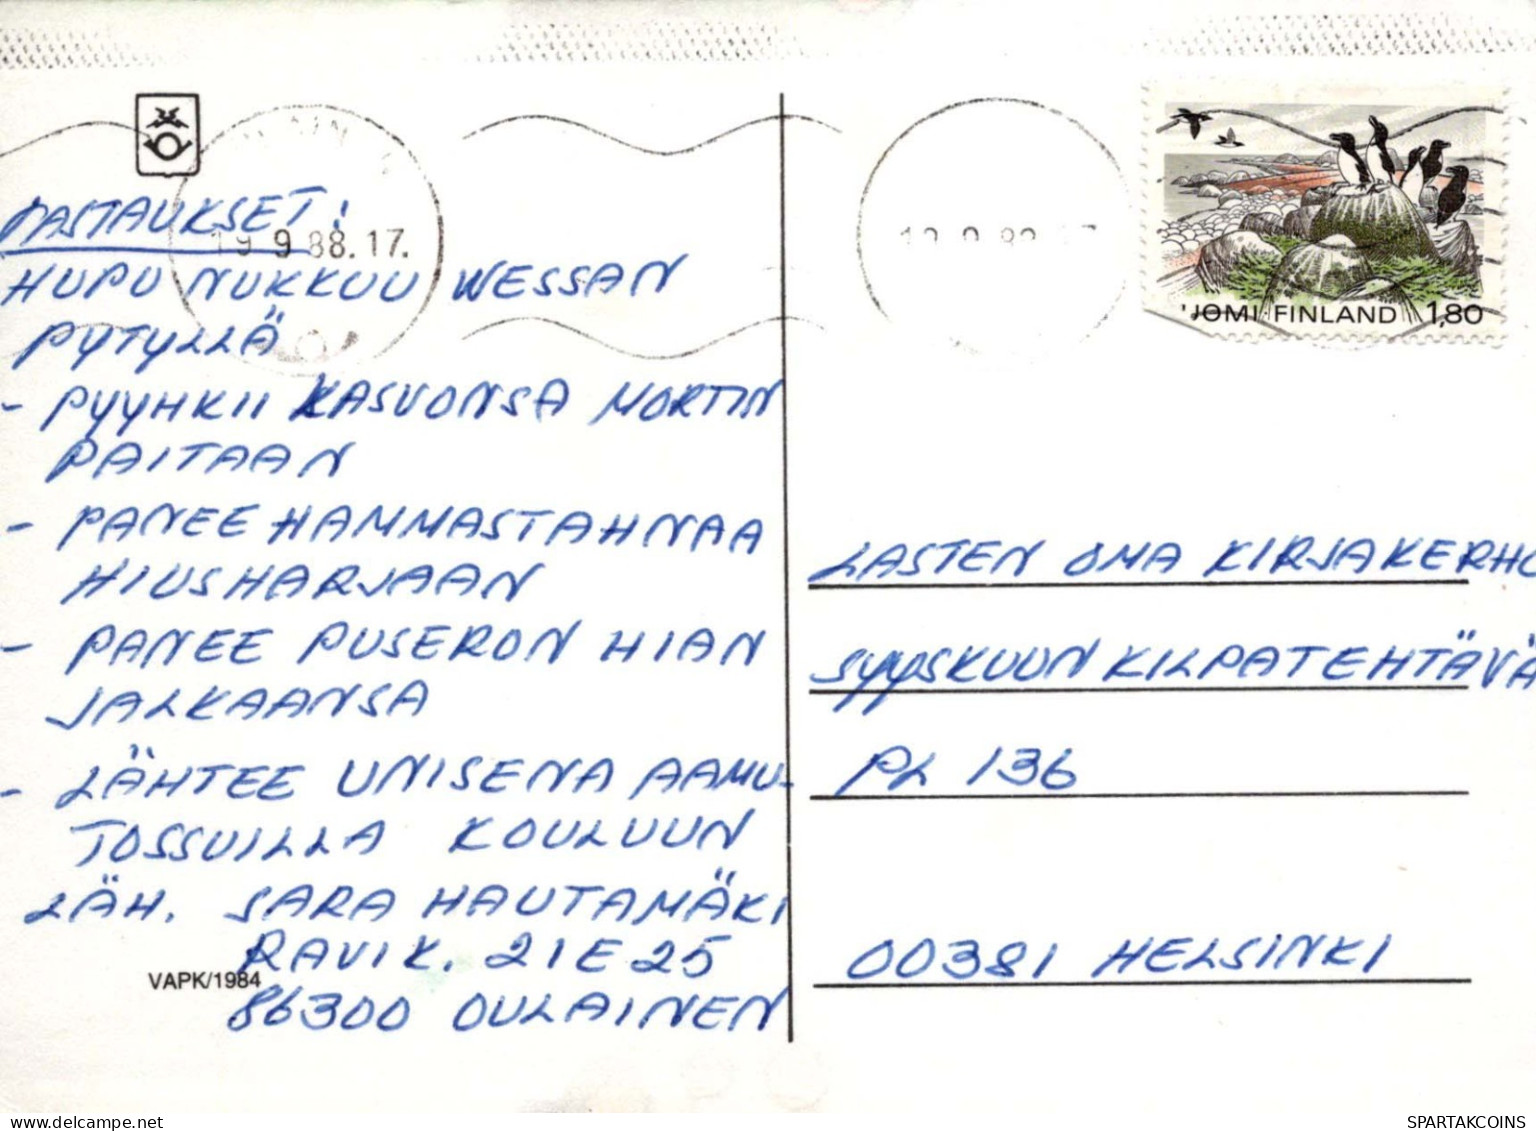 VASTAUKSET!
19.9.88.17.
HUPU NUKKUU WESSAN
PYTYLLÄ
- PYYHKII KASVONSA MORTIN
PAITAAN
- PANEE HAMMASTAHNAA
HIUSHARJAAN
- PANEE PUSERON HIAN
JALKAANSA
- LÄHTEE UNISENA AAMU-
TOSSUILLA KOULUUN
LÄH. SARA HAUTAMÄKI
RAVIK. 21 E 25
VAPK/1984
86300 OULAINEN
SUOMI FINLAND 1,80
LASTEN OMA KIRJAKERHO
SYYSKUUN KILPATEHTÄVÄ
PL 136
00381 HELSINKI
SPARTAKCOINS.COM